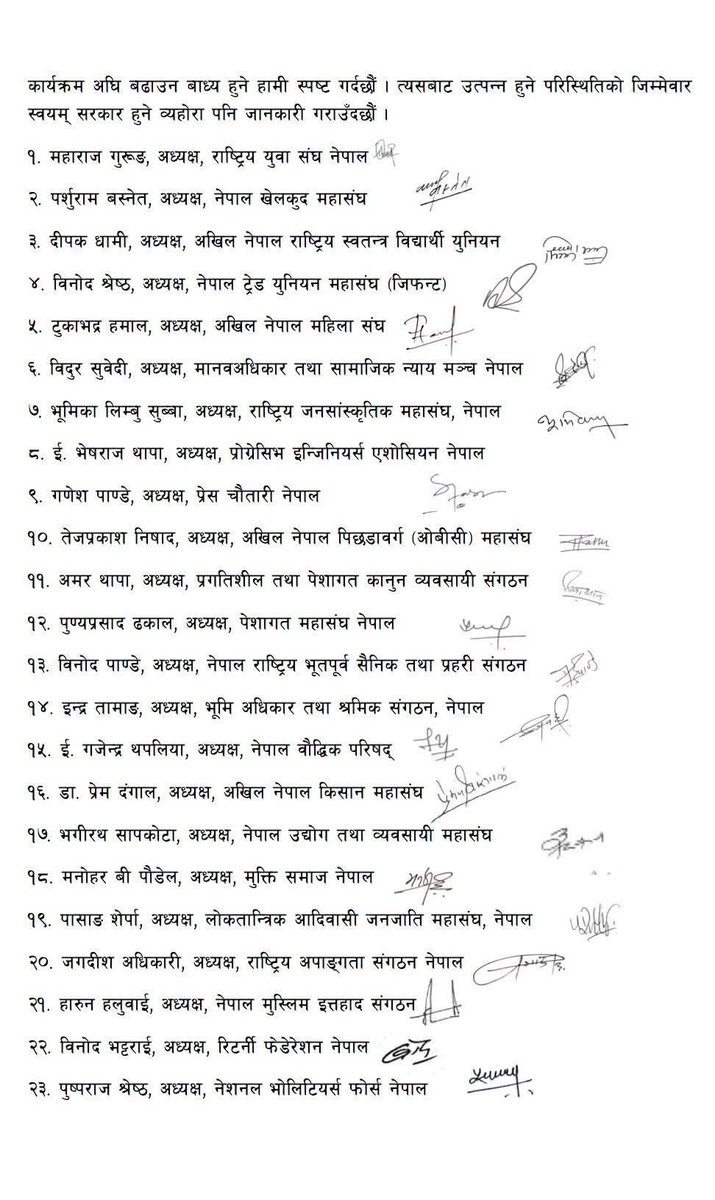 कार्यक्रम अघि बढाउन बाध्य हुने हामी स्पष्ट गर्दछौं । त्यसबाट उत्पन्न हुने परिस्थितिको जिम्मेवार
स्वयम् सरकार हुने व्यहोरा पनि जानकारी गराउँदछौं ।
१. महाराज गुरूङ, अध्यक्ष, राष्ट्रिय युवा संघ नेपाल
२. पर्शुराम बस्नेत, अध्यक्ष, नेपाल खेलकुद महासंघ
३. दीपक धामी, अध्यक्ष, अखिल नेपाल राष्ट्रिय स्वतन्त्र विद्यार्थी युनियन
४. विनोद श्रेष्ठ, अध्यक्ष, नेपाल ट्रेड युनियन महासंघ (जिफन्ट)
५. टुकाभद्र हमाल, अध्यक्ष, अखिल नेपाल महिला संघ
६. विदुर सुवेदी, अध्यक्ष, मानवअधिकार तथा सामाजिक न्याय मञ्च नेपाल
७. भूमिका लिम्बु सुब्बा, अध्यक्ष, राष्ट्रिय जनसांस्कृतिक महासंघ, नेपाल
८. ई. भेषराज थापा, अध्यक्ष, प्रोग्रेसिभ इन्जिनियर्स एशोसियन नेपाल
९. गणेश पाण्डे, अध्यक्ष, प्रेस चौतारी नेपाल
१०. तेजप्रकाश निषाद, अध्यक्ष, अखिल नेपाल पिछडावर्ग (ओबीसी) महासंघ
११. अमर थापा, अध्यक्ष, प्रगतिशील तथा पेशागत कानुन व्यवसायी संगठन
१२. पुण्यप्रसाद ढकाल, अध्यक्ष, पेशागत महासंघ नेपाल
१३. विनोद पाण्डे, अध्यक्ष, नेपाल राष्ट्रिय भूतपूर्व सैनिक तथा प्रहरी संगठन
१४. इन्द्र तामाङ, अध्यक्ष, भूमि अधिकार तथा श्रमिक संगठन, नेपाल
१५. ई. गजेन्द्र थपलिया, अध्यक्ष, नेपाल वौद्धिक परिषद्
१६. डा. प्रेम दंगाल, अध्यक्ष, अखिल नेपाल किसान महासंघ
१७. भगीरथ सापकोटा, अध्यक्ष, नेपाल उद्योग तथा व्यवसायी महासंघ
१८. मनोहर बी पौडेल, अध्यक्ष, मुक्ति समाज नेपाल
१९. पासाङ शेर्पा, अध्यक्ष, लोकतान्त्रिक आदिवासी जनजाति महासंघ, नेपाल
२०. जगदीश अधिकारी, अध्यक्ष, राष्ट्रिय अपाङ्गता संगठन नेपाल
२१. हारुन हलुवाई, अध्यक्ष, नेपाल मुस्लिम इत्तहाद संगठन
२२. विनोद भट्टराई, अध्यक्ष, रिटर्नी फेडेरेशन नेपाल
२३. पुष्पराज श्रेष्ठ, अध्यक्ष, नेशनल भोलिटियर्स फोर्स नेपाल